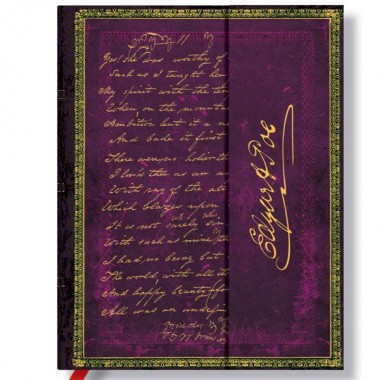 Yes! she was worthy of
Such as I taught her
My spirit with the te
When on the mountai
Ambition lent it a n
And bade it first
There was no holier th
I lov'd thee as an an
With ray of the all
Which blazes upon
It is not surely sin
With such as mine th
I had no being but
The world with all it
And happy beauty for
All was an undefin
Edgar A Poe